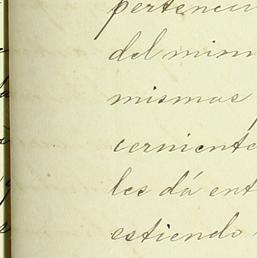 perteneci
del mism
mismas
cerniente
les dá ent
estiendo